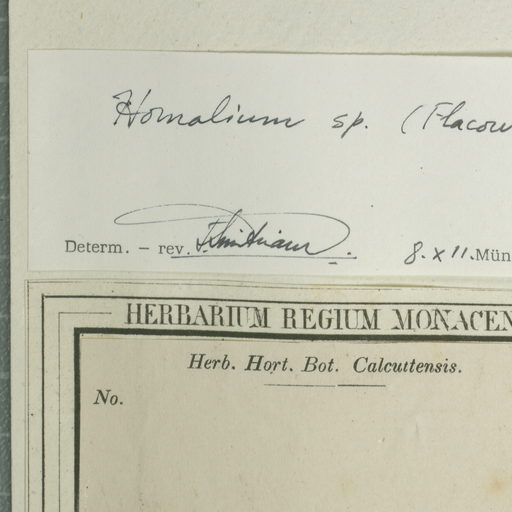 Homalium sp. (Flacou
Determ. – rev. 8.XII. Mün
HERBARIUM REGIUM MONACEN
Herb. Hort. Bot. Calcuttensis.
No.